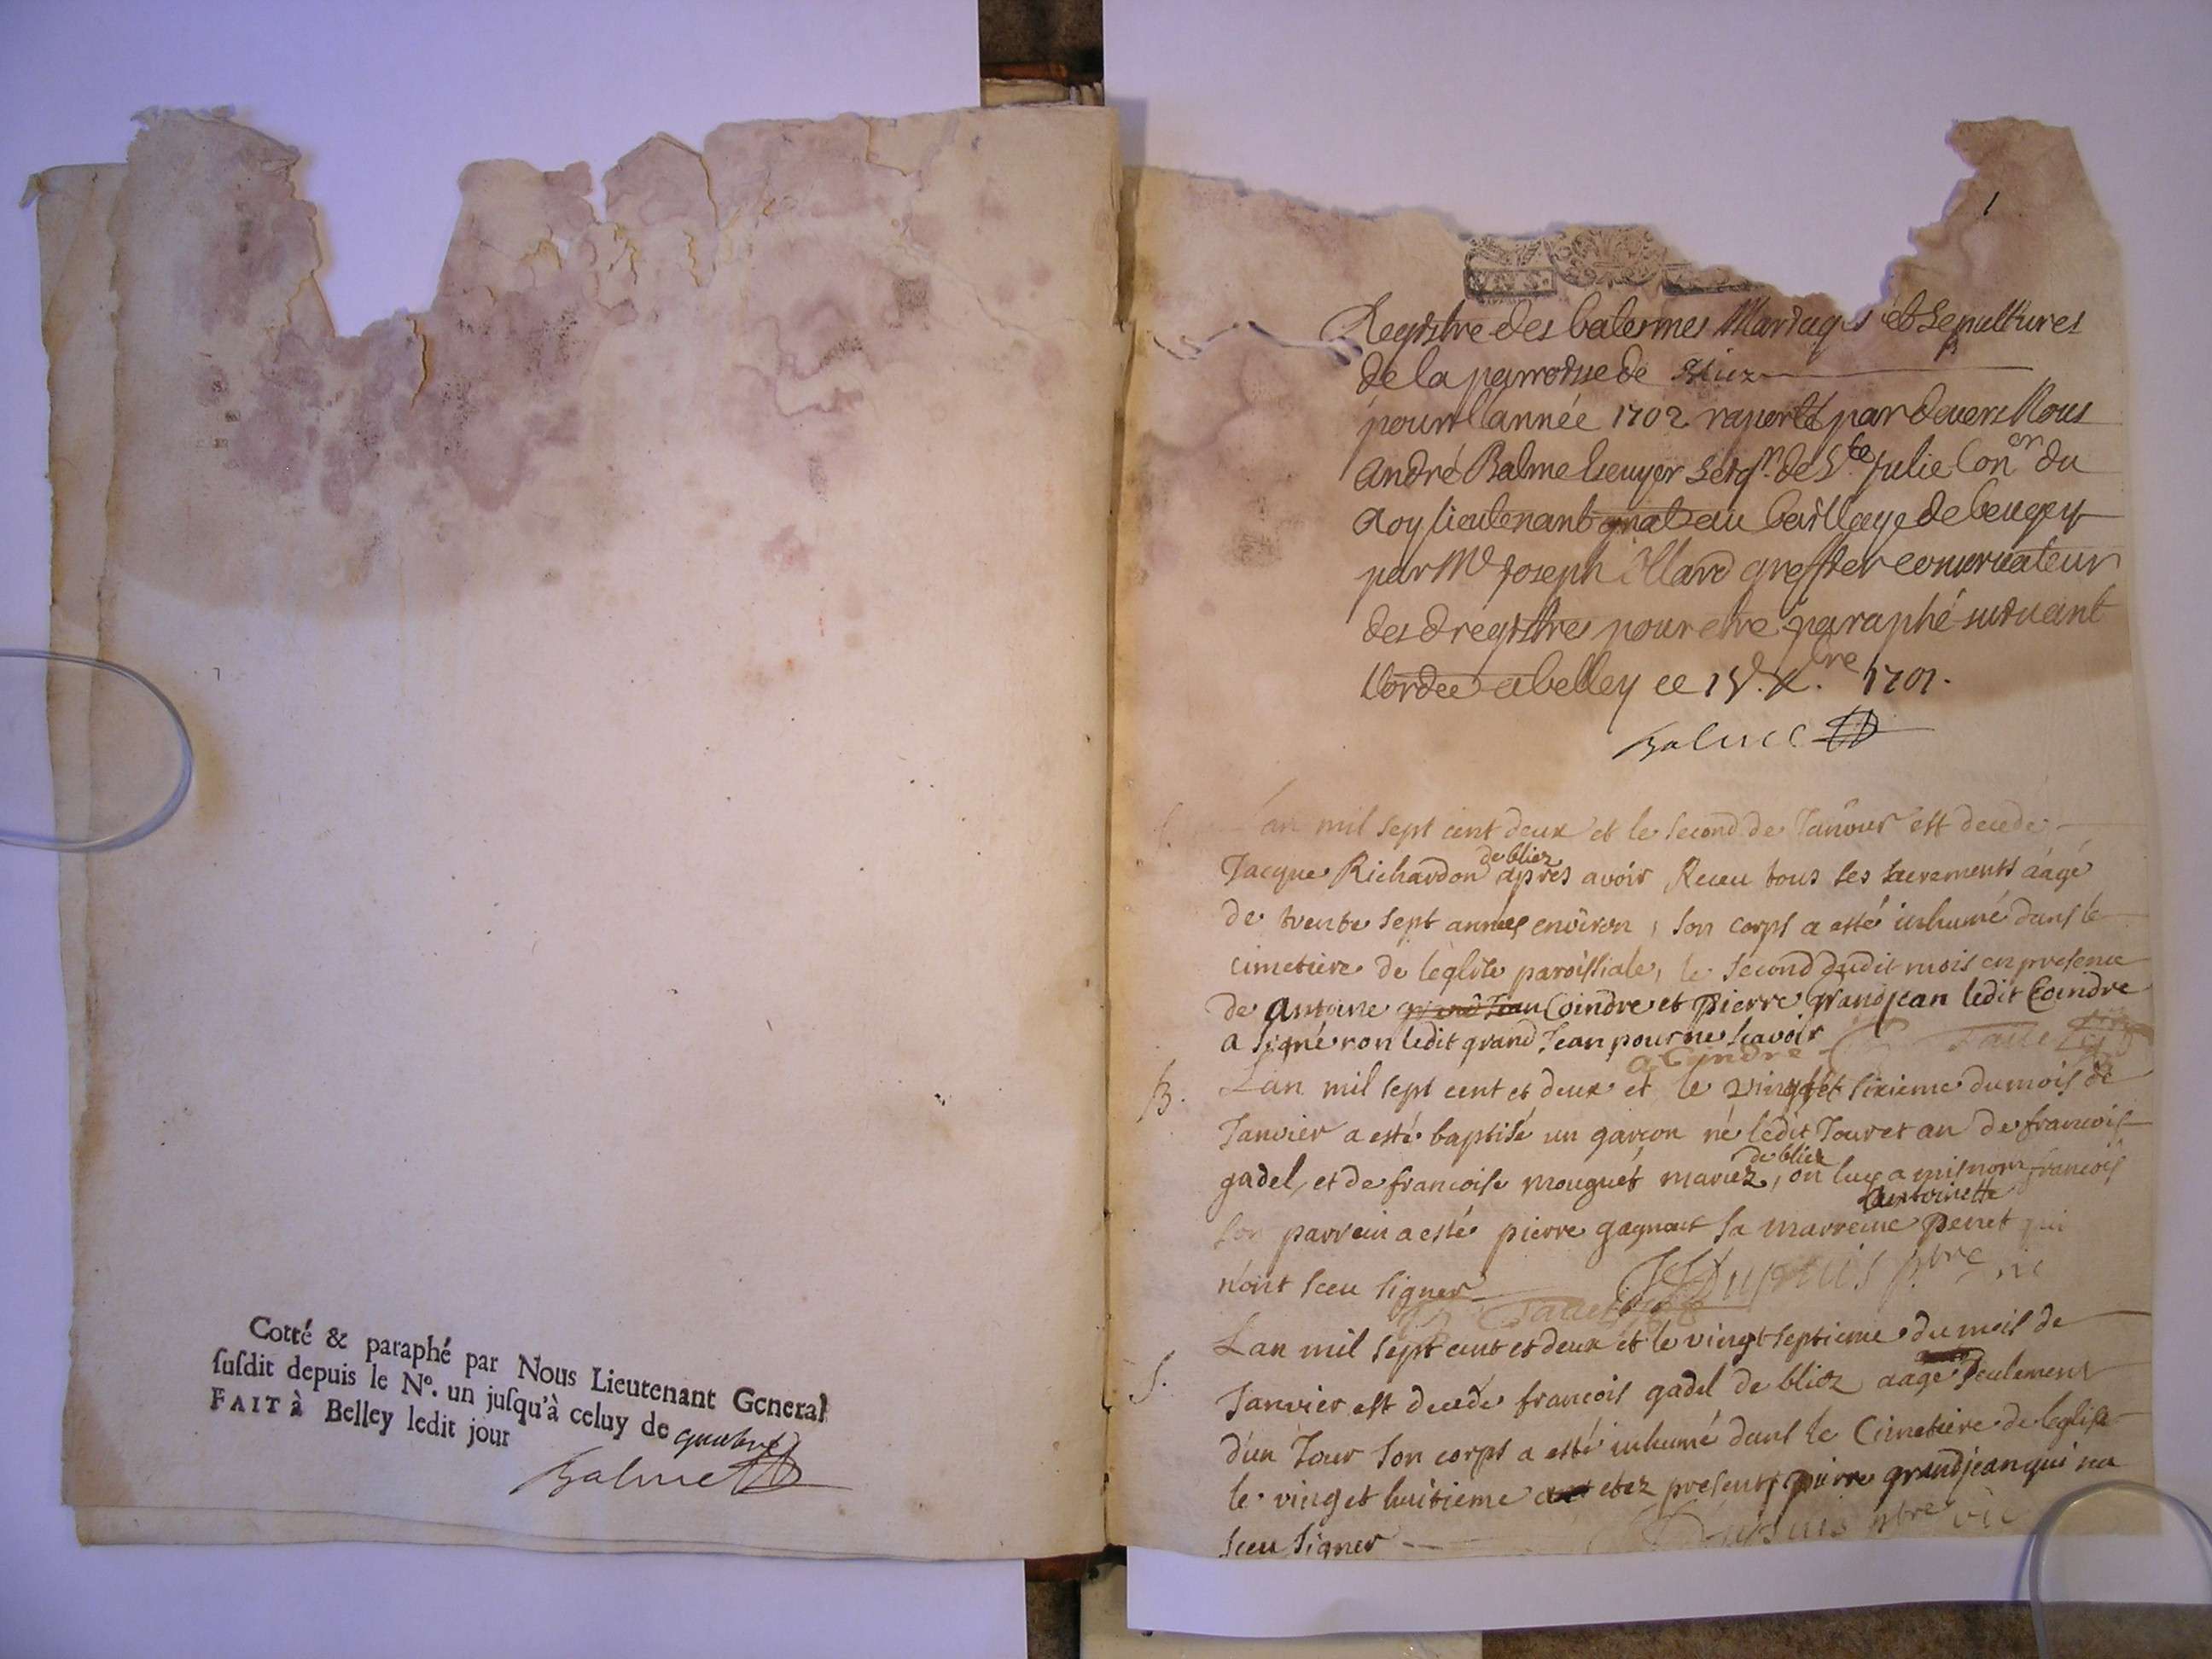 Cotté & paraphé par Nous Lieutenant General
suſdit depuis le N°. un juſqu'à celuy de quatre
FAIT à Belley ledit jour
Balme
1
Registre des batesmes Mariages et Sepultures
de la parroisse de
pour l'année 1702 raporté par devers Nous
André Balme Escuyer seigr. de Ste Julie Coner du
Roy lieutenant gnal au bailliage de beugey
par Me Joseph greffier conservateur
des d registres pour estre paraphé suivant
lordce a belley ce 15. Xbre 1701.
Balme
S.
Lan mil sept cent deux et le second de Janvier est decedé
de bliez
Jacque Richardon apres avoir Receu tous les sacrements aagé
de trente sept années environ, son corps a esté inhumé dans le
cimetiere de leglise paroissiale, le second dudit mois en presence
de antoine grand Jean Coindre et pierre grandjean ledit Coindre
a signé non ledit grand Jean pour ne scavoir
a Coindre
B.
Lan mil sept cent et deux et le vingt et sixieme du mois de
Janvier a esté baptisé un garcon né ledit Jour et an de francois
de bliez
gadel, et de francoise mouguet mariez, on luy a mis nom francois
antoinette
son parrein a esté pierre gagnout sa marreine penet qui
n'ont sceu signer
Dupuis pbre vic
S.
Lan mil sept cent et deux et le vingt septieme du mois de
Janvier est decedé francois gadel de bliez aagé seulement
d'un Jour son corps a esté inhumé dans le Cimetiere de leglise
le vingt et huitieme etez presents pierre grandjean qui na
sceu signer
Dupuis pbre vic